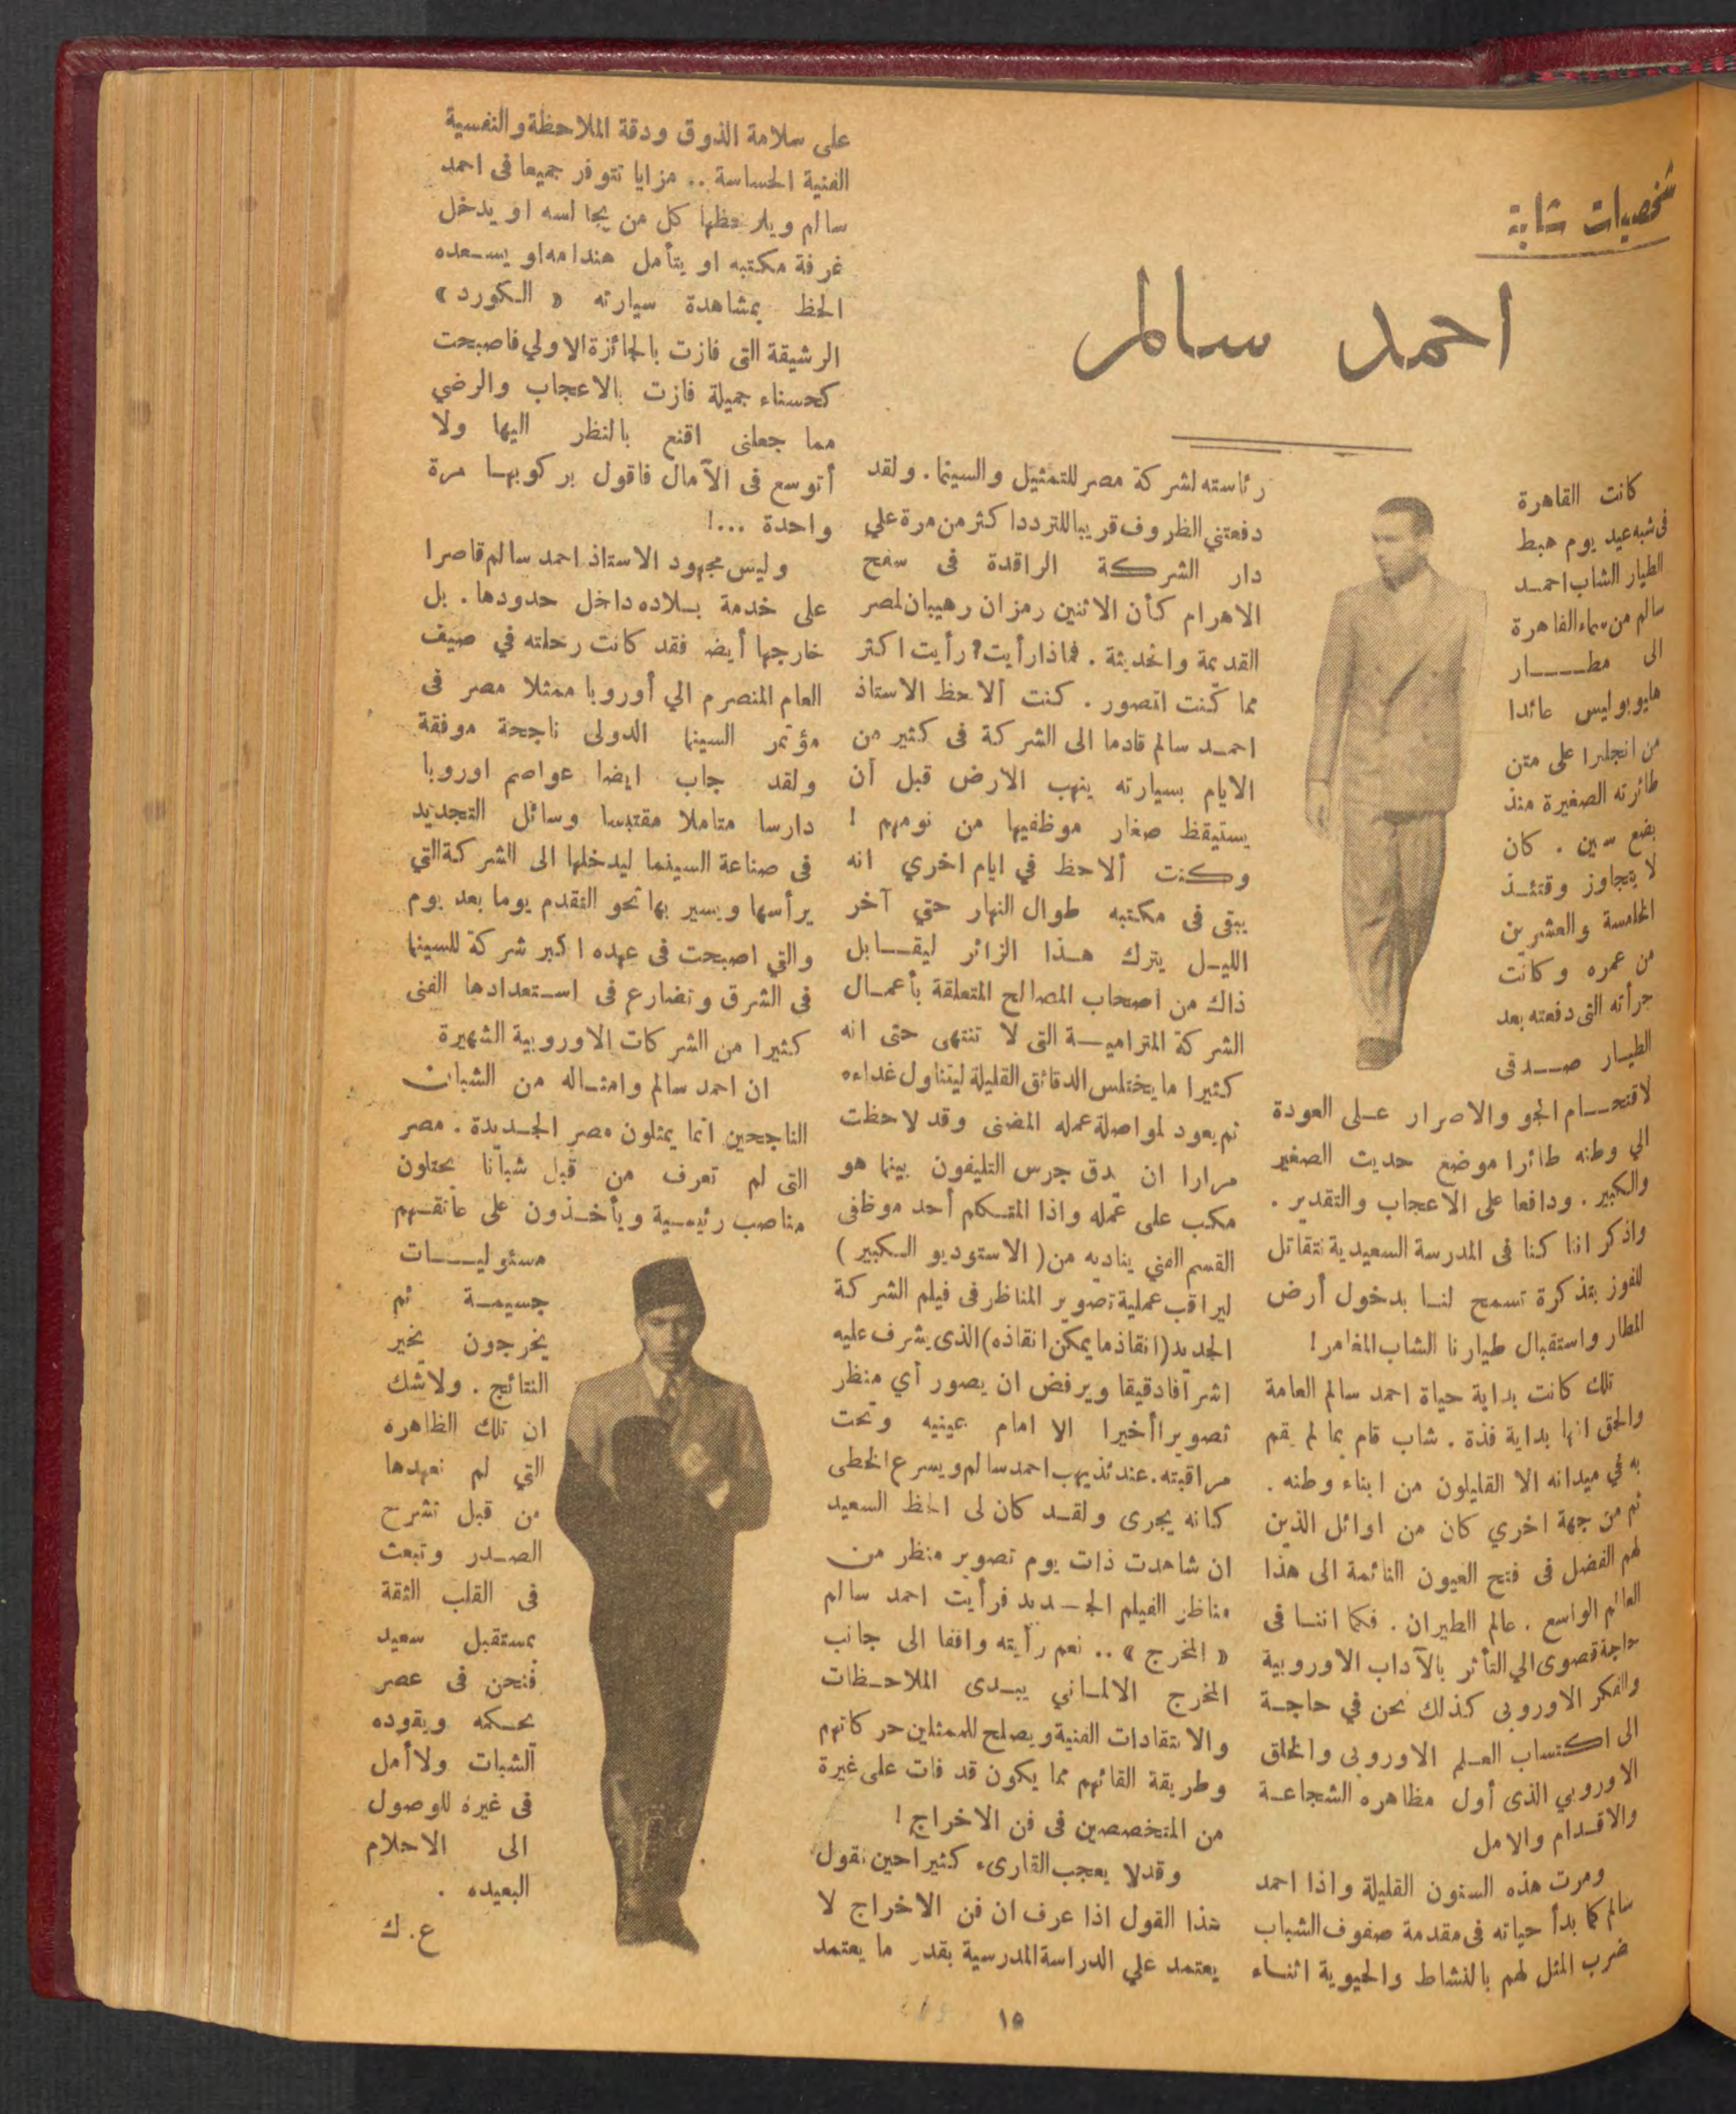 شخصيات شابة
احمد سالم
كانت القاهرة
فى شبه عيد يوم هبط
الطيار الشاب احمد
سالم من سماء القاهرة
الى مطار
هليوبوليس عائدا
من انجلترا على متن
طائرته الصغيرة منذ
بضع سنين . كان
لا يتجاوز وقتئذ
الخامسة والعشرين
من عمره وكانت
جرأته التى دفعته بعد
الطيار صدقى
لاقتحام الجو والاصرار على العودة
الي وطنه طائرا موضع حديث الصغير
والكبير . ودافعا على الاعجاب والتقدير .
واذكر اننا كنا فى المدرسة السعيدية نتقاتل
للفوز بتذكرة تسمح لنا بدخول أرض
المطار واستقبال طيارنا الشاب المغامر !
تلك كانت بداية حياة احمد سالم العامة
والحق انها بداية فذة . شاب قام بما لم يقم
به في ميدانه الا القليلون من ابناء وطنه .
ثم من جهة اخري كان من اوائل الذين
لهم الفضل فى فتح العيون النائمة الى هذا
العالم الواسع . عالم الطيران . فكما اننا فى
حاجة قصوى الي التأثر بالآداب الاوروبية
والفكر الاوروبى كذلك نحن في حاجة
الى اكتساب العلم الاوروبى والخلق
الاوروبي الذى أول مظاهره الشجاعة
والاقدام والامل
ومرت هذه السنون القليلة واذا احمد
سالم كما بدأ حياته فى مقدمة صفوف الشباب
ضرب المثل لهم بالنشاط والحيوية اثناء
رئاسته لشركة مصر للتمثيل والسينما . ولقد
دفعتني الظروف قريبا للتردد اكثر من مرة علي
دار الشركة الراقدة فى سفح
الاهرام كأن الاثنين رمزان رهيبان لمصر
القديمة والحديثة . فماذا رأيت ؟ رأيت اكثر
مما كنت اتصور . كنت ألاحظ الاستاذ
احمد سالم قادما الى الشركة فى كثير من
الايام بسيارته ينهب الارض قبل أن
يستيقظ صغار موظفيها من نومهم !
وكنت ألاحظ في ايام اخري انه
يبقى فى مكتبه طوال النهار حتي آخر
الليل يترك هذا الزائر ليقابل
ذاك من أصحاب المصالح المتعلقة بأعمال
الشركة المترامية التى لا تنتهى حتى انه
كثيرا ما يختلس الدقائق القليلة ليتناول غداءه
ثم يعود لمواصلة عمله المضنى وقد لاحظت
مرارا ان يدق جرس التليفون بينما هو
مكب على عمله واذا المتكلم أحد موظفى
القسم الفني يناديه من ( الاستوديو الكبير )
ليراقب عملية تصوير المناظر فى فيلم الشركة
الجديد (انقاذ ما يمكن انقاذه) الذى يشرف عليه
اشرافا دقيقا ويرفض ان يصور أي منظر
تصويرا أخيرا الا امام عينيه وتحت
مراقبته . عندئذ يهب احمد سالم ويسرع الخطى
كانه يجرى ولقد كان لى الحظ السعيد
ان شاهدت ذات يوم تصوير منظر من
مناظر الفيلم الجديد فرأيت احمد سالم
« المخرج » .. نعم رأيته واقفا الى جانب
المخرج الالماني يبدى الملاحظات
والانتقادات الفنية ويصلح للممثلين حركاتهم
وطريقة القائهم مما يكون قد فات على غيرة
من المتخصصين فى فن الاخراج !
وقد لا يعجب القارىء كثيرا حين نقول
هذا القول اذا عرف ان فن الاخراج لا
يعتمد علي الدراسة المدرسية بقدر ما يعتمد
على سلامة الذوق ودقة الملاحظة والنفسية
الفنية الحساسة .. مزايا تتوفر جميعا فى احمد
سالم ويلاحظها كل من يجالسه او يدخل
غرفة مكتبه او يتأمل هندامه او يسعده
الحظ بمشاهدة سيارته « الكورد »
الرشيقة التى فازت بالجائزة الاولي فاصبحت
كحسناء جميلة فازت بالاعجاب والرضي
مما جعلنى اقنع بالنظر اليها ولا
أتوسع فى الآمال فاقول بركوبها مرة
واحدة ...!
وليس مجهود الاستاذ احمد سالم قاصرا
على خدمة بلاده داخل حدودها . بل
خارجها أيضا فقد كانت رحلته في صيف
العام المنصرم الي أوروبا ممثلا مصر فى
مؤتمر السينما الدولى ناجحة موفقة
ولقد جاب ايضا عواصم اوروبا
دارسا متاملا مقتبسا وسائل التجديد
فى صناعة السينما ليدخلها الى الشركة التي
يرأسها ويسير بها نحو التقدم يوما بعد يوم
والتي اصبحت فى عهده اكبر شركة للسينما
فى الشرق وتضارع فى استعدادها الفنى
كثيرا من الشركات الاوروبية الشهيرة
ان احمد سالم وامثاله من الشبان
الناجحين انما يمثلون مصر الجديدة . مصر
التى لم تعرف من قبل شبانا يحتلون
مناصب رئيسية ويأخذون على عاتقهم
مسئوليات
جسيمة ثم
يخرجون بخير
النتائج . ولاشك
ان تلك الظاهره
التي لم نعهدها
من قبل تشرح
الصدر وتبعث
فى القلب الثقة
بمستقبل سعيد
فنحن فى عصر
يحكمه ويقوده
الشباب ولا أمل
فى غيره للوصول
الى الاحلام
البعيده .
ع . ك
١٥